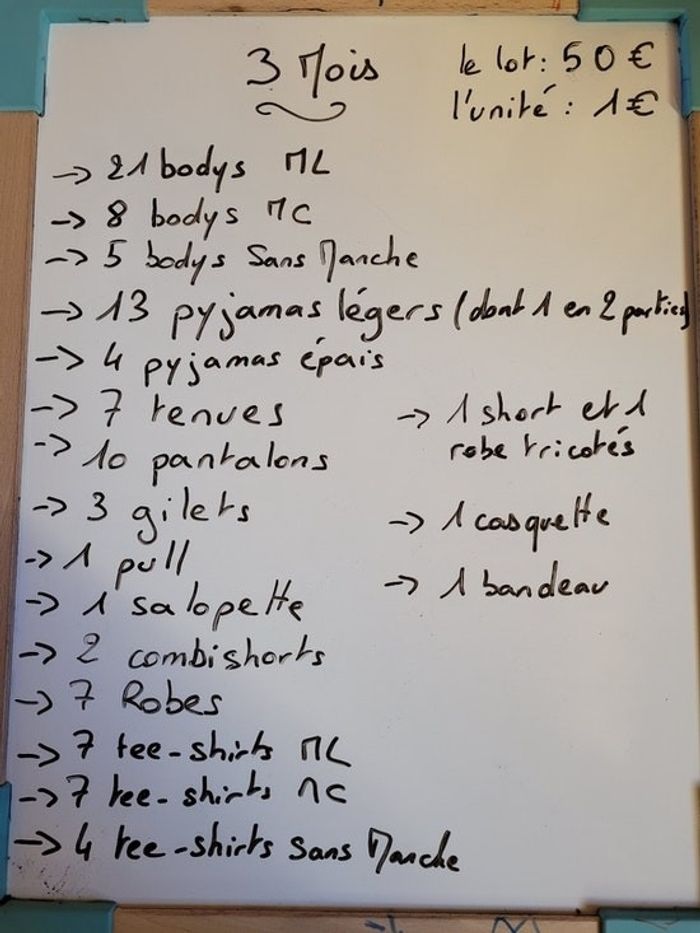 3 Mois
le lot : 50 €
l'unité : 1€
→ 21 bodys ML
→ 8 bodys MC
→ 5 bodys Sans Manche
→ 13 pyjamas légers (dont 1 en 2 parties)
→ 4 pyjamas épais
→ 7 tenues
→ 10 pantalons
→ 3 gilets
→ 1 pull
→ 1 salopette
→ 2 combishorts
→ 7 Robes
→ 7 tee-shirts ML
→ 7 tee-shirts MC
→ 4 tee-shirts Sans Manche
→ 1 short et 1
robe tricotés
→ 1 casquette
→ 1 bandeau